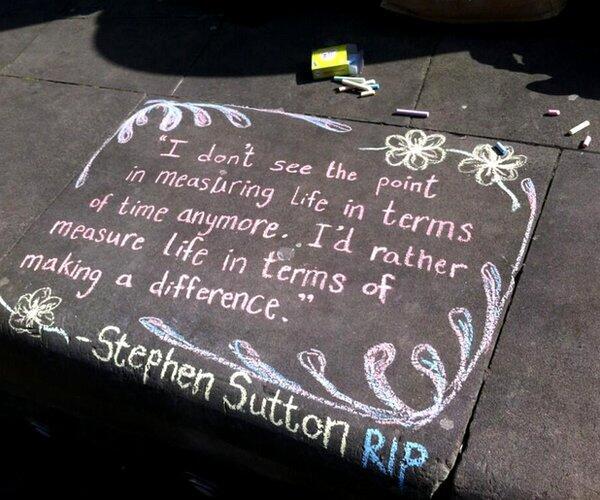 "I don't see the point
in measuring life in terms
of time anymore. I'd rather
measure life in terms of
making a difference."
-Stephen Sutton RIP